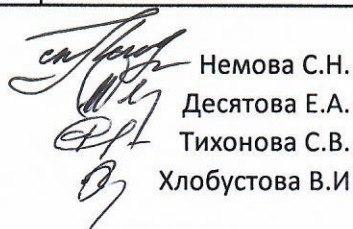 Немова С.Н.
Десятова Е.А.
Тихонова С.В.
Хлобустова В.И